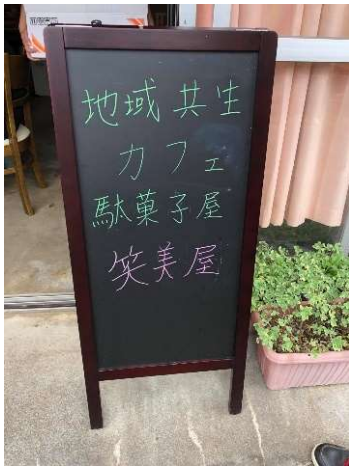 地域共生
カフェ
駄菓子屋
笑美屋